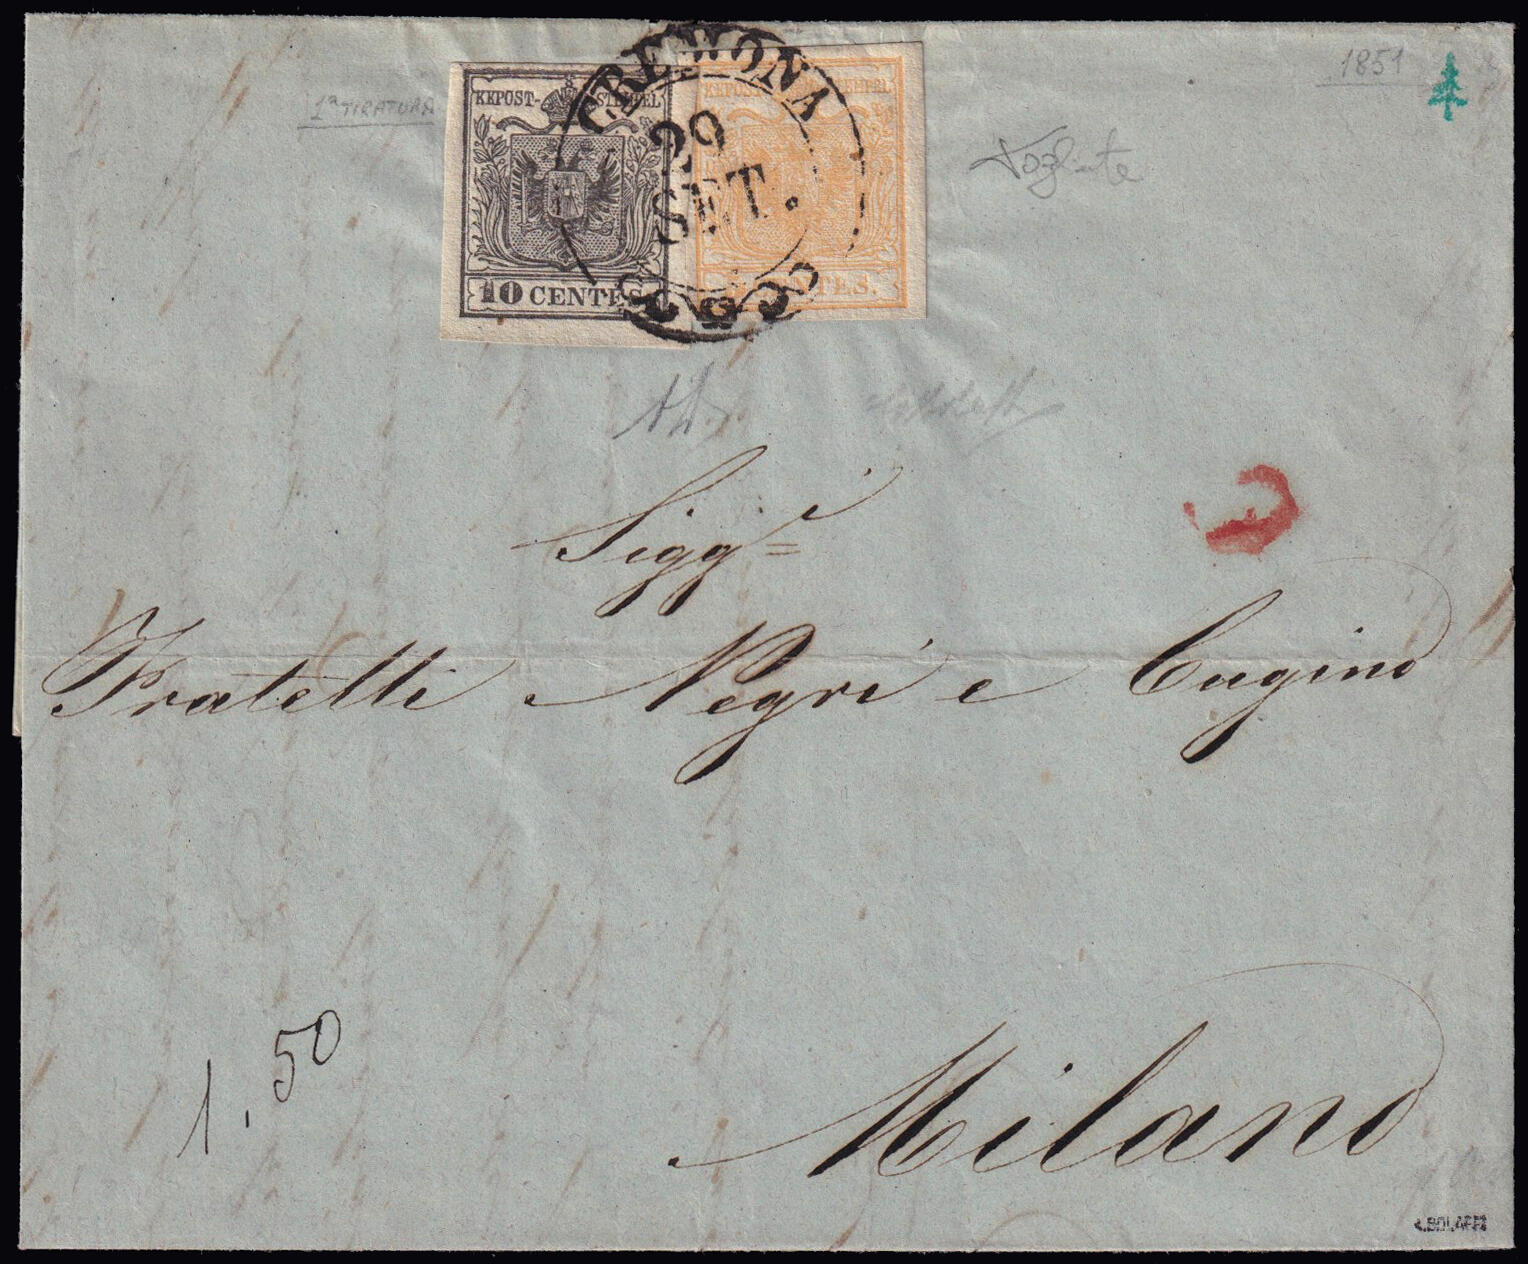 1851
1ª TIRATURA
KKPOST-STEMPEL
KKPOST-STEMPEL
CREMONA
29
SET.
10 CENTES.
CENTES.
Sigg.i
Fratelli Negri e Cugino
1.50
Milano
R.BOLAFFI